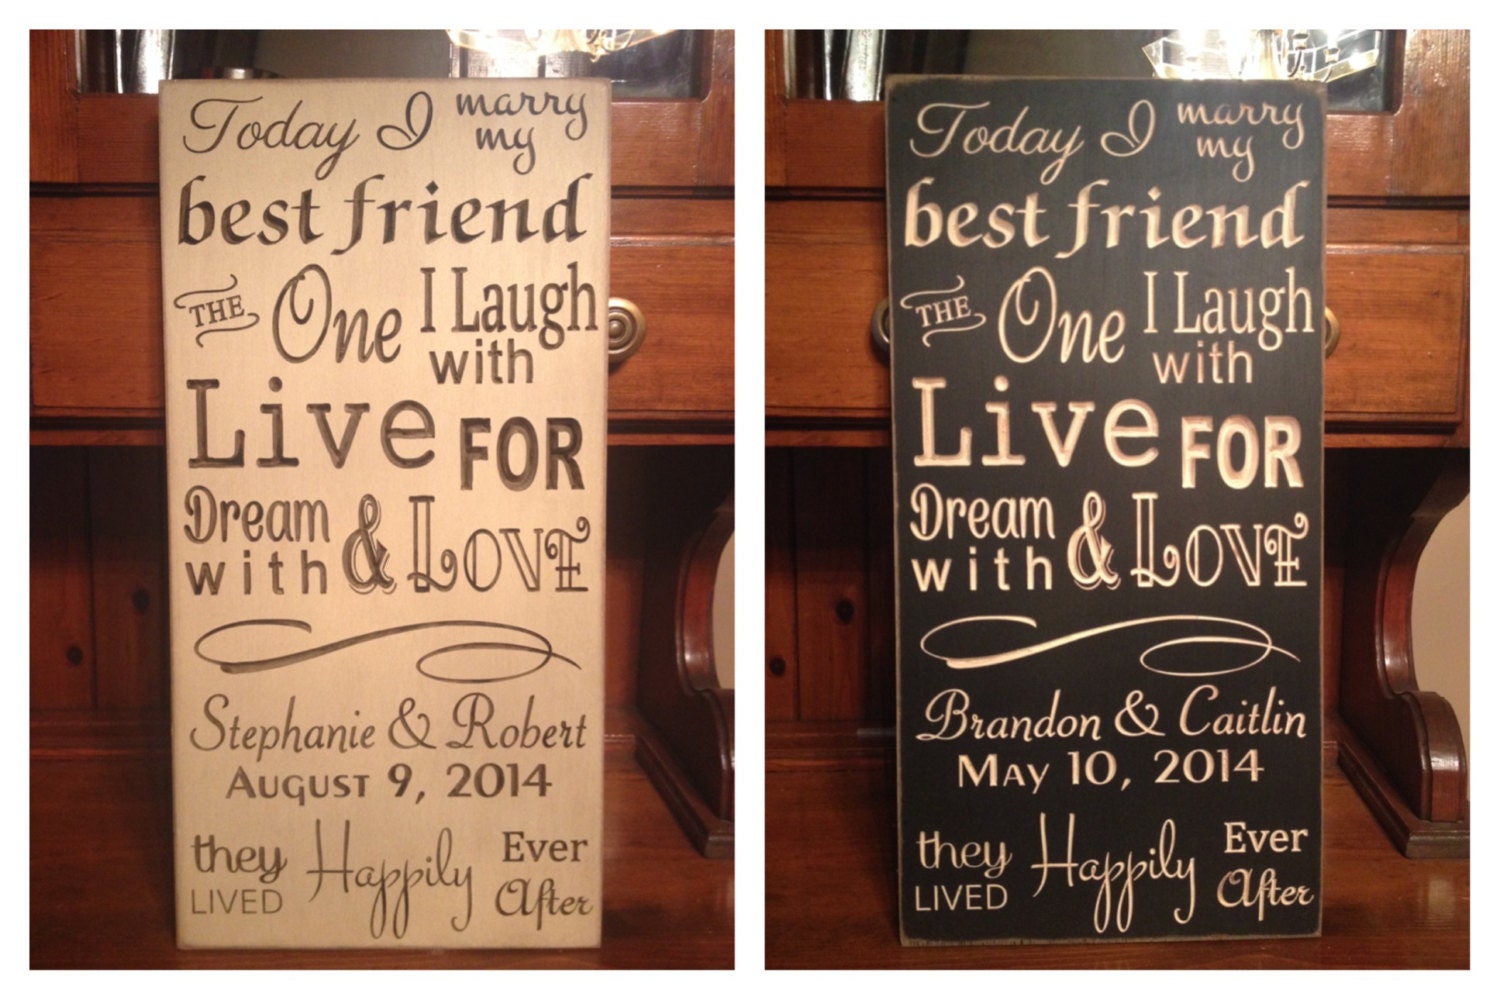 Today I marry my
best friend
THE One I Laugh with
Live FOR
Dream with & LOVE
Stephanie & Robert
August 9, 2014
they LIVED Happily Ever After
Today I marry my
best friend
THE One I Laugh with
Live FOR
Dream with & LOVE
Brandon & Caitlin
May 10, 2014
they LIVED Happily Ever After